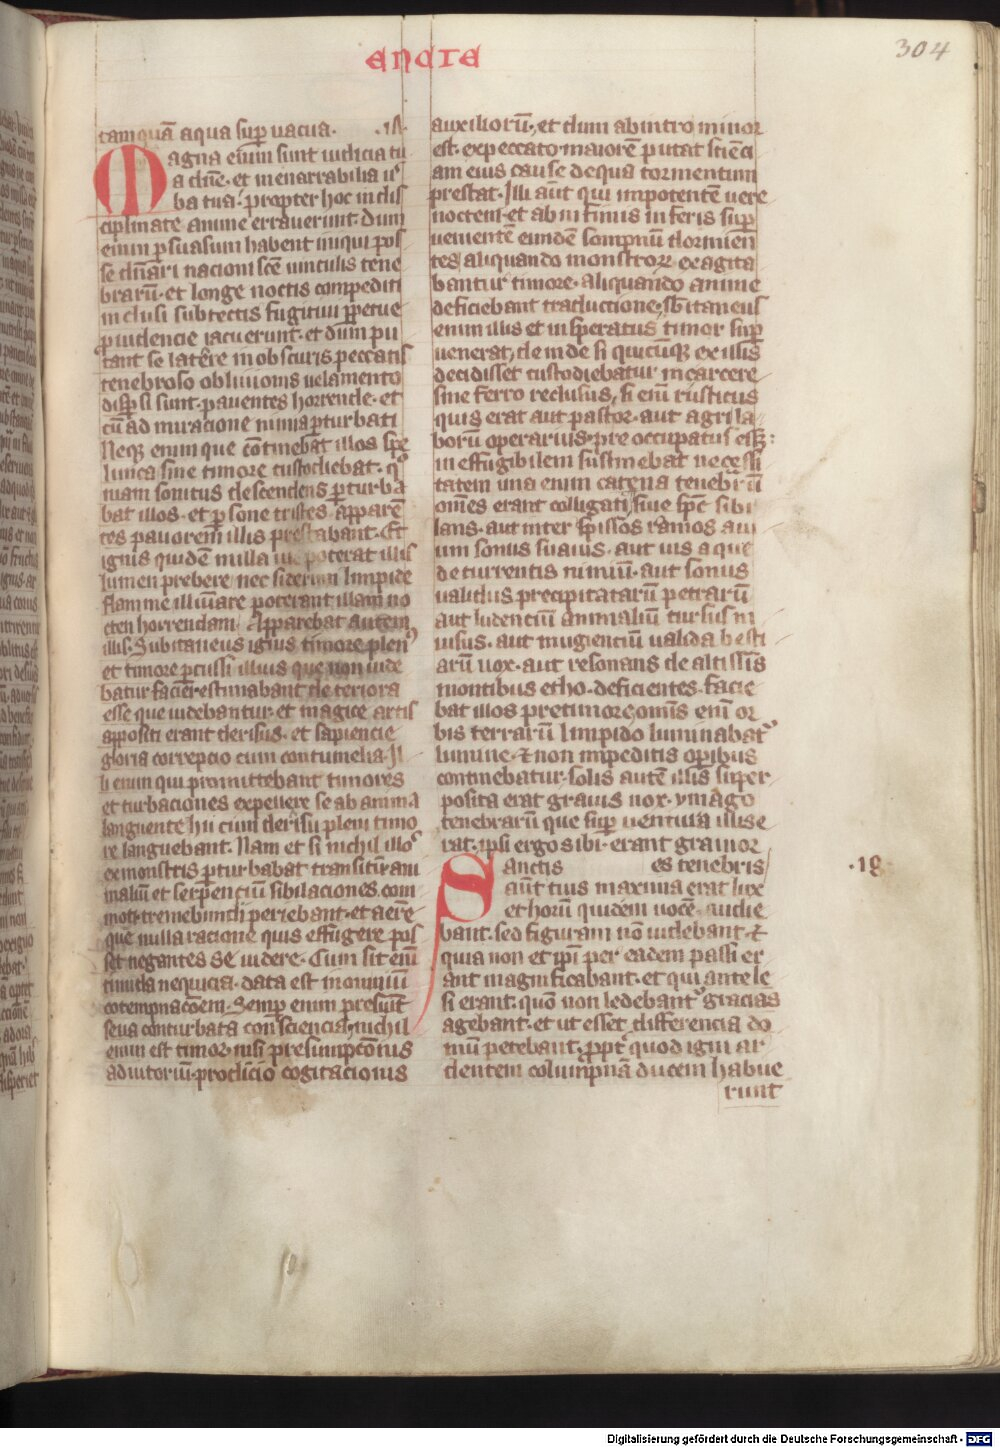 ENCIE
304
tamquā aqua sup̄ vacua. .17.
Magna eīm sunt iudicia tu
a dn̄e. et inenarrabilia ūˢ
ba tua. propter hoc indis
ciplinate anime erraverunt. dum
enim p̱suasum habent iniqui pos
se dn̄ari nacioni scē vinculis tene
brarū. et longe noctis compediti
inclusi sub tectis fugitivi ꝑpetue
ꝓuidencie iacuerunt. et dum pu
tant se latēre in obscuris peccatis
tenebroso oblivionis velamento
disꝑsi sunt. paventes horrende. et
cū ad miracione nimia ꝑturbati
Neqꝫ enim que cōtinebat illos spe
lunca sine timore custodiebat. qͦ
niam sonitus descendens ꝑturba
bat illos. et ꝑsone tristes apparē
tes pavorem illis prestabant. Et
ignis quidem nulla vis poterat illis
lumen prebere nec siderum limpide
flamme illūnare poterant illam no
ctem horrendam. Apparebat autem
illis. Subitaneus ignis timore plenꝰ
et timore ꝑcussi illius que non vide
batur faciēi estimabant deteriora
esse que videbantur. et magice artis
appositi erant derisus. et sapiencie
gloria correpcio cum contumelia. Il
li enim qui promittebant timores
et turbaciones expellere se ab anima
languente hii cum derisu pleni timo
re languebant. Nam et si nichil illoˢ
ex monstris ꝑturbabat transitū ani
malium et serpenciū sibilaciones. com
moti tremebundi periebant. et aere
quē nulla racione quis effugere pos
set negantes se videre. Cum sit enī
timida nequicia. data est in omniū
cōtempnacōem. Semꝑ enim presūit
seva conturbata consciencia. nichil
enim est timor. nisi presumpcōnis
adiutoriū. prodicio cogitacionis
auxiliorū. et dum ab intro minor
est. expeccato. maiorē putat scienci
am eius cause de qua tormentum
prestat. Illi aūt qui impotentē vere
noctem. et ab infimis inferis sup̄
venientē eundē sompnū dormien
tes. aliquando monstroꝝ exagita
bantur timore. aliquando anime
deficiebant traductione. sbitaneus
enim illis et insperatus timor sup̄
venerat. deinde si quicūqꝫ ex illis
decidisset custodiebatur in carcere
sine ferro reclusus. si enī rusticus
quis erat aut pastor. aut agri la
borū operarius. pre occupatus esꝫ:
in effugibilem sustinebat necessi
tatem una enim catena tenebrarū
omēs erant colligati. sive spc̄ sibi
lans. aut inter spissos ramos avi
um sonus suavis. aut vis aque
decurrentis nimiū. aut sonus
validus precipitatarū petrarū
aut ludentiū animaliū cursus in
visus. aut mugienciū valida besti
arū vox. aut resonans de altissīs
montibus echo. deficientes facie
bat illos pre timore. omīs enī or
bis terrarū limpido luminabatˢ
lumine. et non impeditis oꝑibus
continebatur. solis autē illis super
posita erat gravis nox. ymago
tenebrarū que sup̄ ventura illis e
rat. ipsi ergo sibi erant graviores tenebris
.18.
Sanctis
aūt tuis maxima erat lux
et horū quidem vocē audie
bant. sed figuram nō videbant. et
quia non et ip̄i per eadem passi er
ant magnificabant. et qui ante le
si erant. quō non ledebantˢ gracias
agebant. et ut esset differencia do
nū petebant. ꝓptˢ quod igni ar
dentem columpnā ducem habue
runt
Digitalisierung gefördert durch die Deutsche Forschungsgemeinschaft - DFG